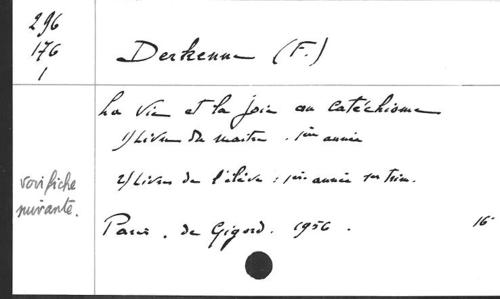 296
176
1
Derkenne (F.)
La Vie et la joie au catéchisme
1) Livre du maître. 1ère année
2) Livre de l'élève : 1ère année 1er trim.
voir fiche
suivante.
Paris. de Gigord. 1956.
16